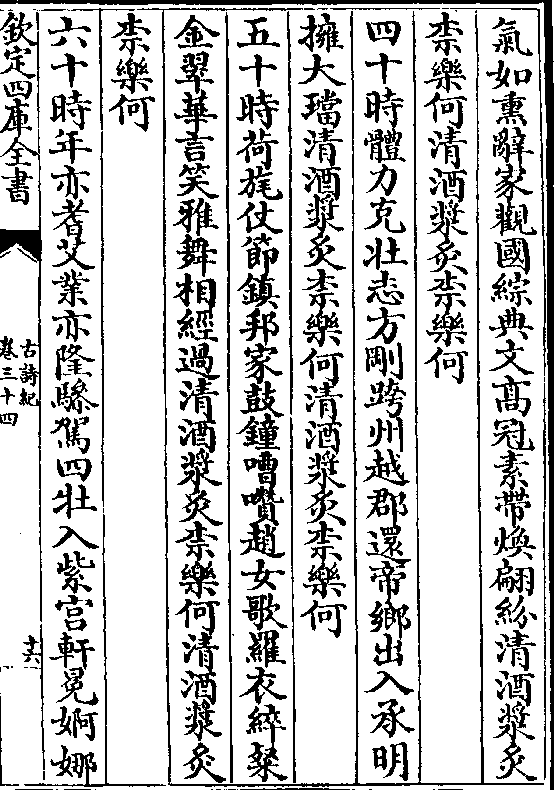 氣如熏辭家觀國綜典文髙冠素帶煥翩紛清酒漿炙
柰樂何清酒漿炙柰樂何
四十時體力克壯志方剛跨州越郡還帝鄉出入承明
擁大璫清酒漿炙柰樂何清酒漿炙柰樂何
五十時荷旄仗節鎮邦家鼓鐘嘈囋趙女歌羅衣綷粲
金翠華言笑雅舞相經過清酒漿炙柰樂何清酒漿炙
柰樂何
六十時年亦耆艾業亦隆驂駕四牡入紫宫軒冕婀娜
欽定四庫全書
古詩紀
卷三十四
十六